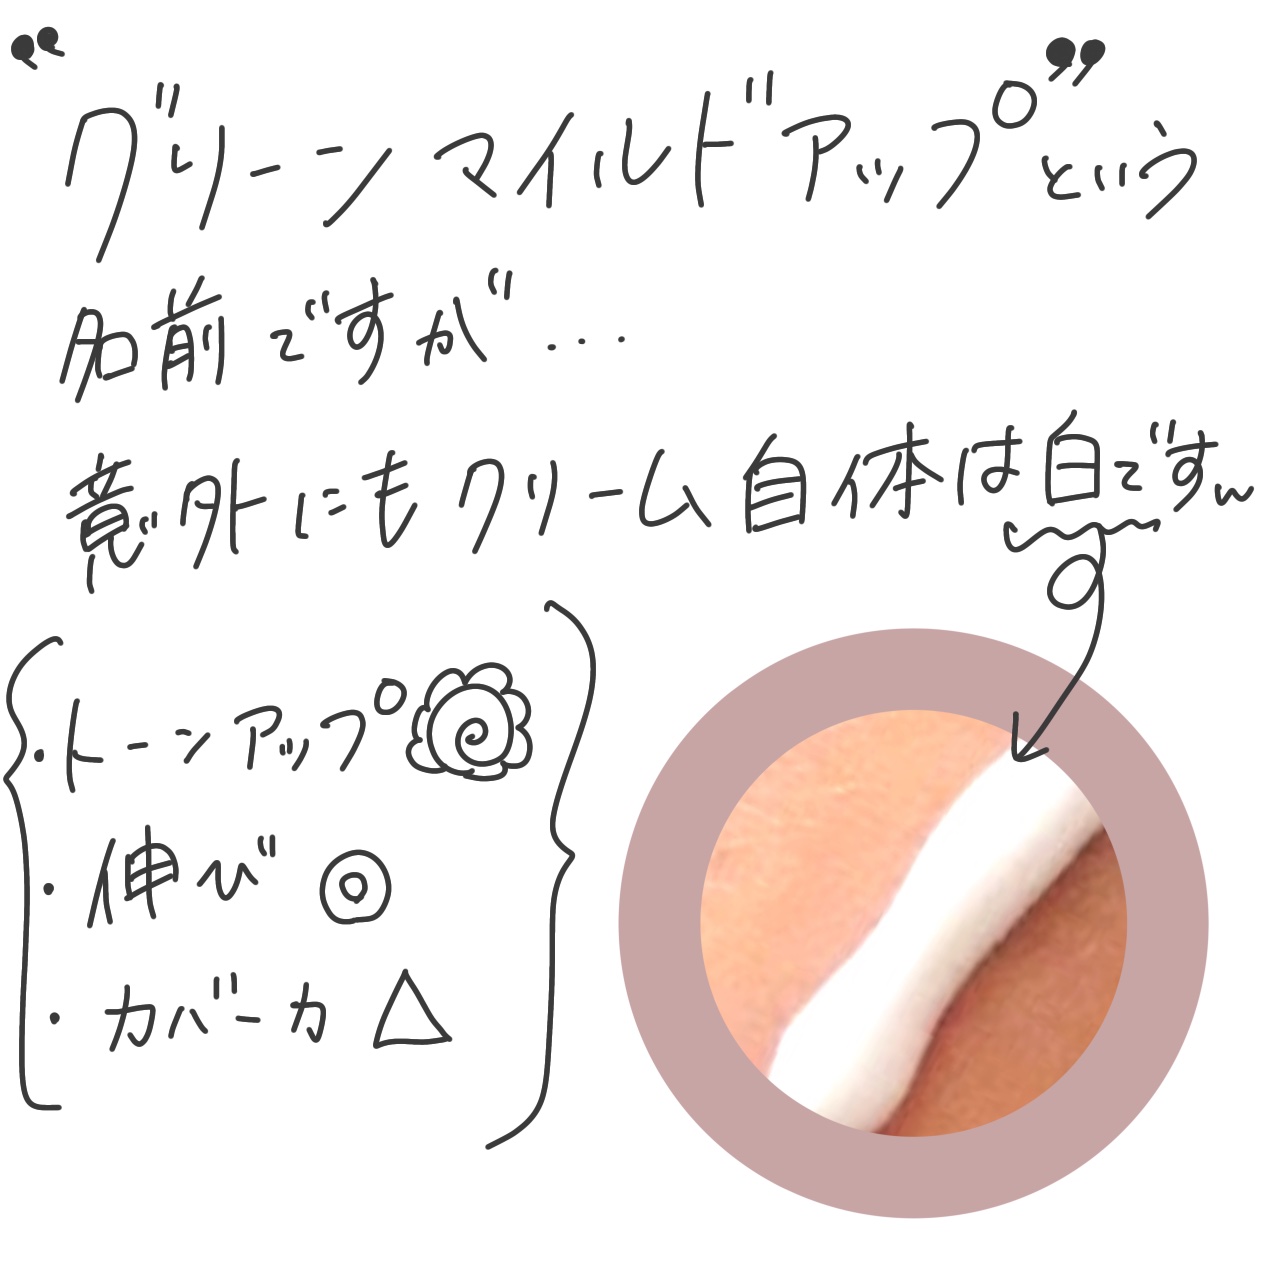 “グリーンマイルドアップ”という
名前ですが...
意外にもクリーム自体は白ですw
・トーンアップ
・伸び ◎
・カバー力 △